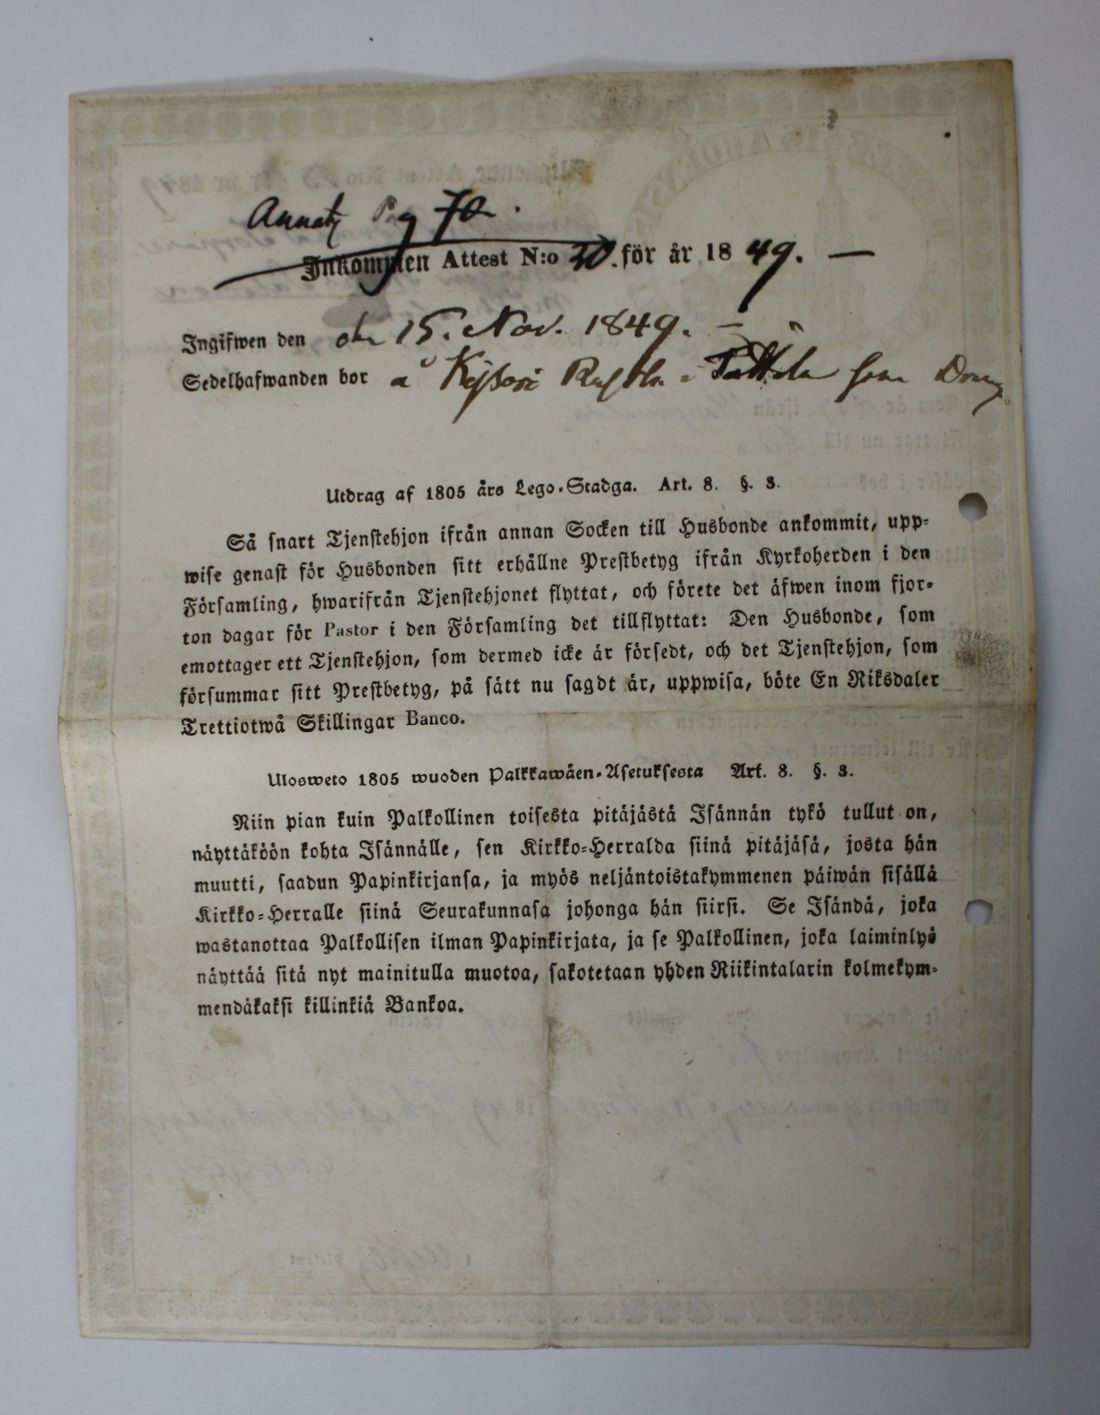 Annot Pag 70.
Inkommen Attest N:o 30. för år 1849. —
Ingifwen den den 15. Nov. 1849. —
Sedelhafwanden bor å i som Dräng
Utdrag af 1805 års Lego-Stadga. Art. 8. §. 3.
Så snart Tjenstehjon ifrån annan Socken till Husbonde ankommit, upp-
wise genast för Husbonden sitt erhållne Prestbetyg ifrån Kyrkoherden i den
Församling, hwarifrån Tjenstehjonet flyttat, och förete det äfwen inom fjor-
ton dagar för Pastor i den Församling det tillflyttat: Den Husbonde, som
emottager ett Tjenstehjon, som dermed icke är försedt, och det Tjenstehjon, som
försummar sitt Prestbetyg, på sätt nu sagdt är, uppwisa, böte En Riksdaler
Trettiotwå Skillingar Banco.
Ulosweto 1805 wuoden Palkkawäen-Asetuksesta Art. 8. §. 3.
Niin pian kuin Palkollinen toisesta pitäjästä Isännän tykö tullut on,
näyttäköön kohta Isännälle, sen Kirkko-Herralda siinä pitäjäsä, josta hän
muutti, saadun Papinkirjansa, ja myös neljäntoistakymmenen päiwän sisällä
Kirkko-Herralle siinä Seurakunnasa johonga hän siirsi. Se Isändä, joka
wastanottaa Palkollisen ilman Papinkirjata, ja se Palkollinen, joka laiminlyö
näyttää sitä nyt mainitulla muotoa, sakotetaan yhden Riikintalarin kolmekym-
mendäkaksi killinkiä Bankoa.